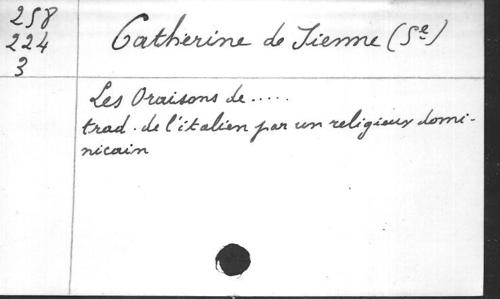 258
224
3
Catherine de Sienne (Se)
Les Oraisons de.....
trad. de l'italien par un religieux domi-
nicain